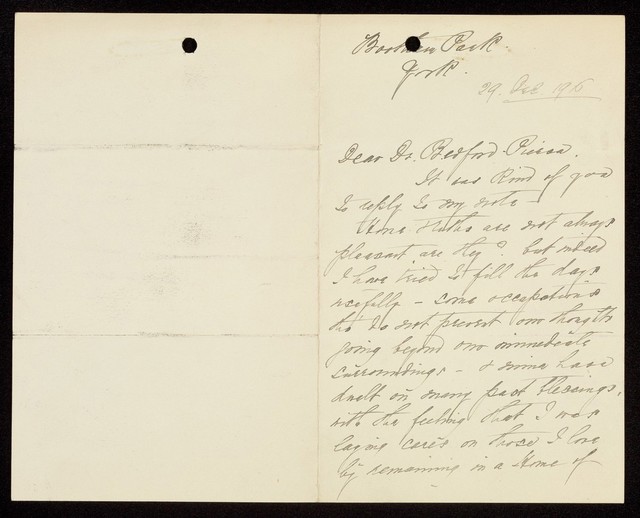 Bootham Park.
York.
29. Oct. 1916
Dear Dr. Bedford-Pierce.
It was kind of you
to reply to my note –
Home truths are not always
pleasant are they? but indeed
I have tried to fill the days
usefully – some occupations
tho' do not prevent our thoughts
going beyond our immediate
surroundings – & mine have
dwelt on many past blessings,
with the feeling that I was
laying cares on those I love
by remaining in a Home of